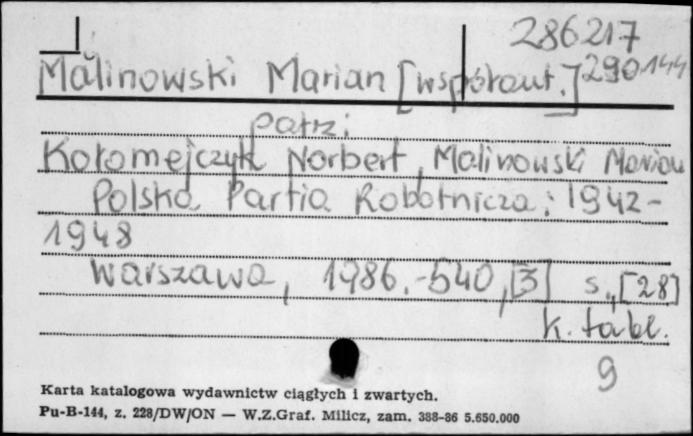 286217
Malinowski Marian [współaut.] 290144
patrz:
Kołomejczyk Norbert, Malinowski Marian
Polska Partia Robotnicza: 1942-
1948
Warszawa, 1986.-540,[3] s.,[28]
k. tabl.
9
Karta katalogowa wydawnictw ciągłych i zwartych.
Pu-B-144, z. 228/DW/ON — W.Z.Graf. Milicz, zam. 388-86 5.650.000